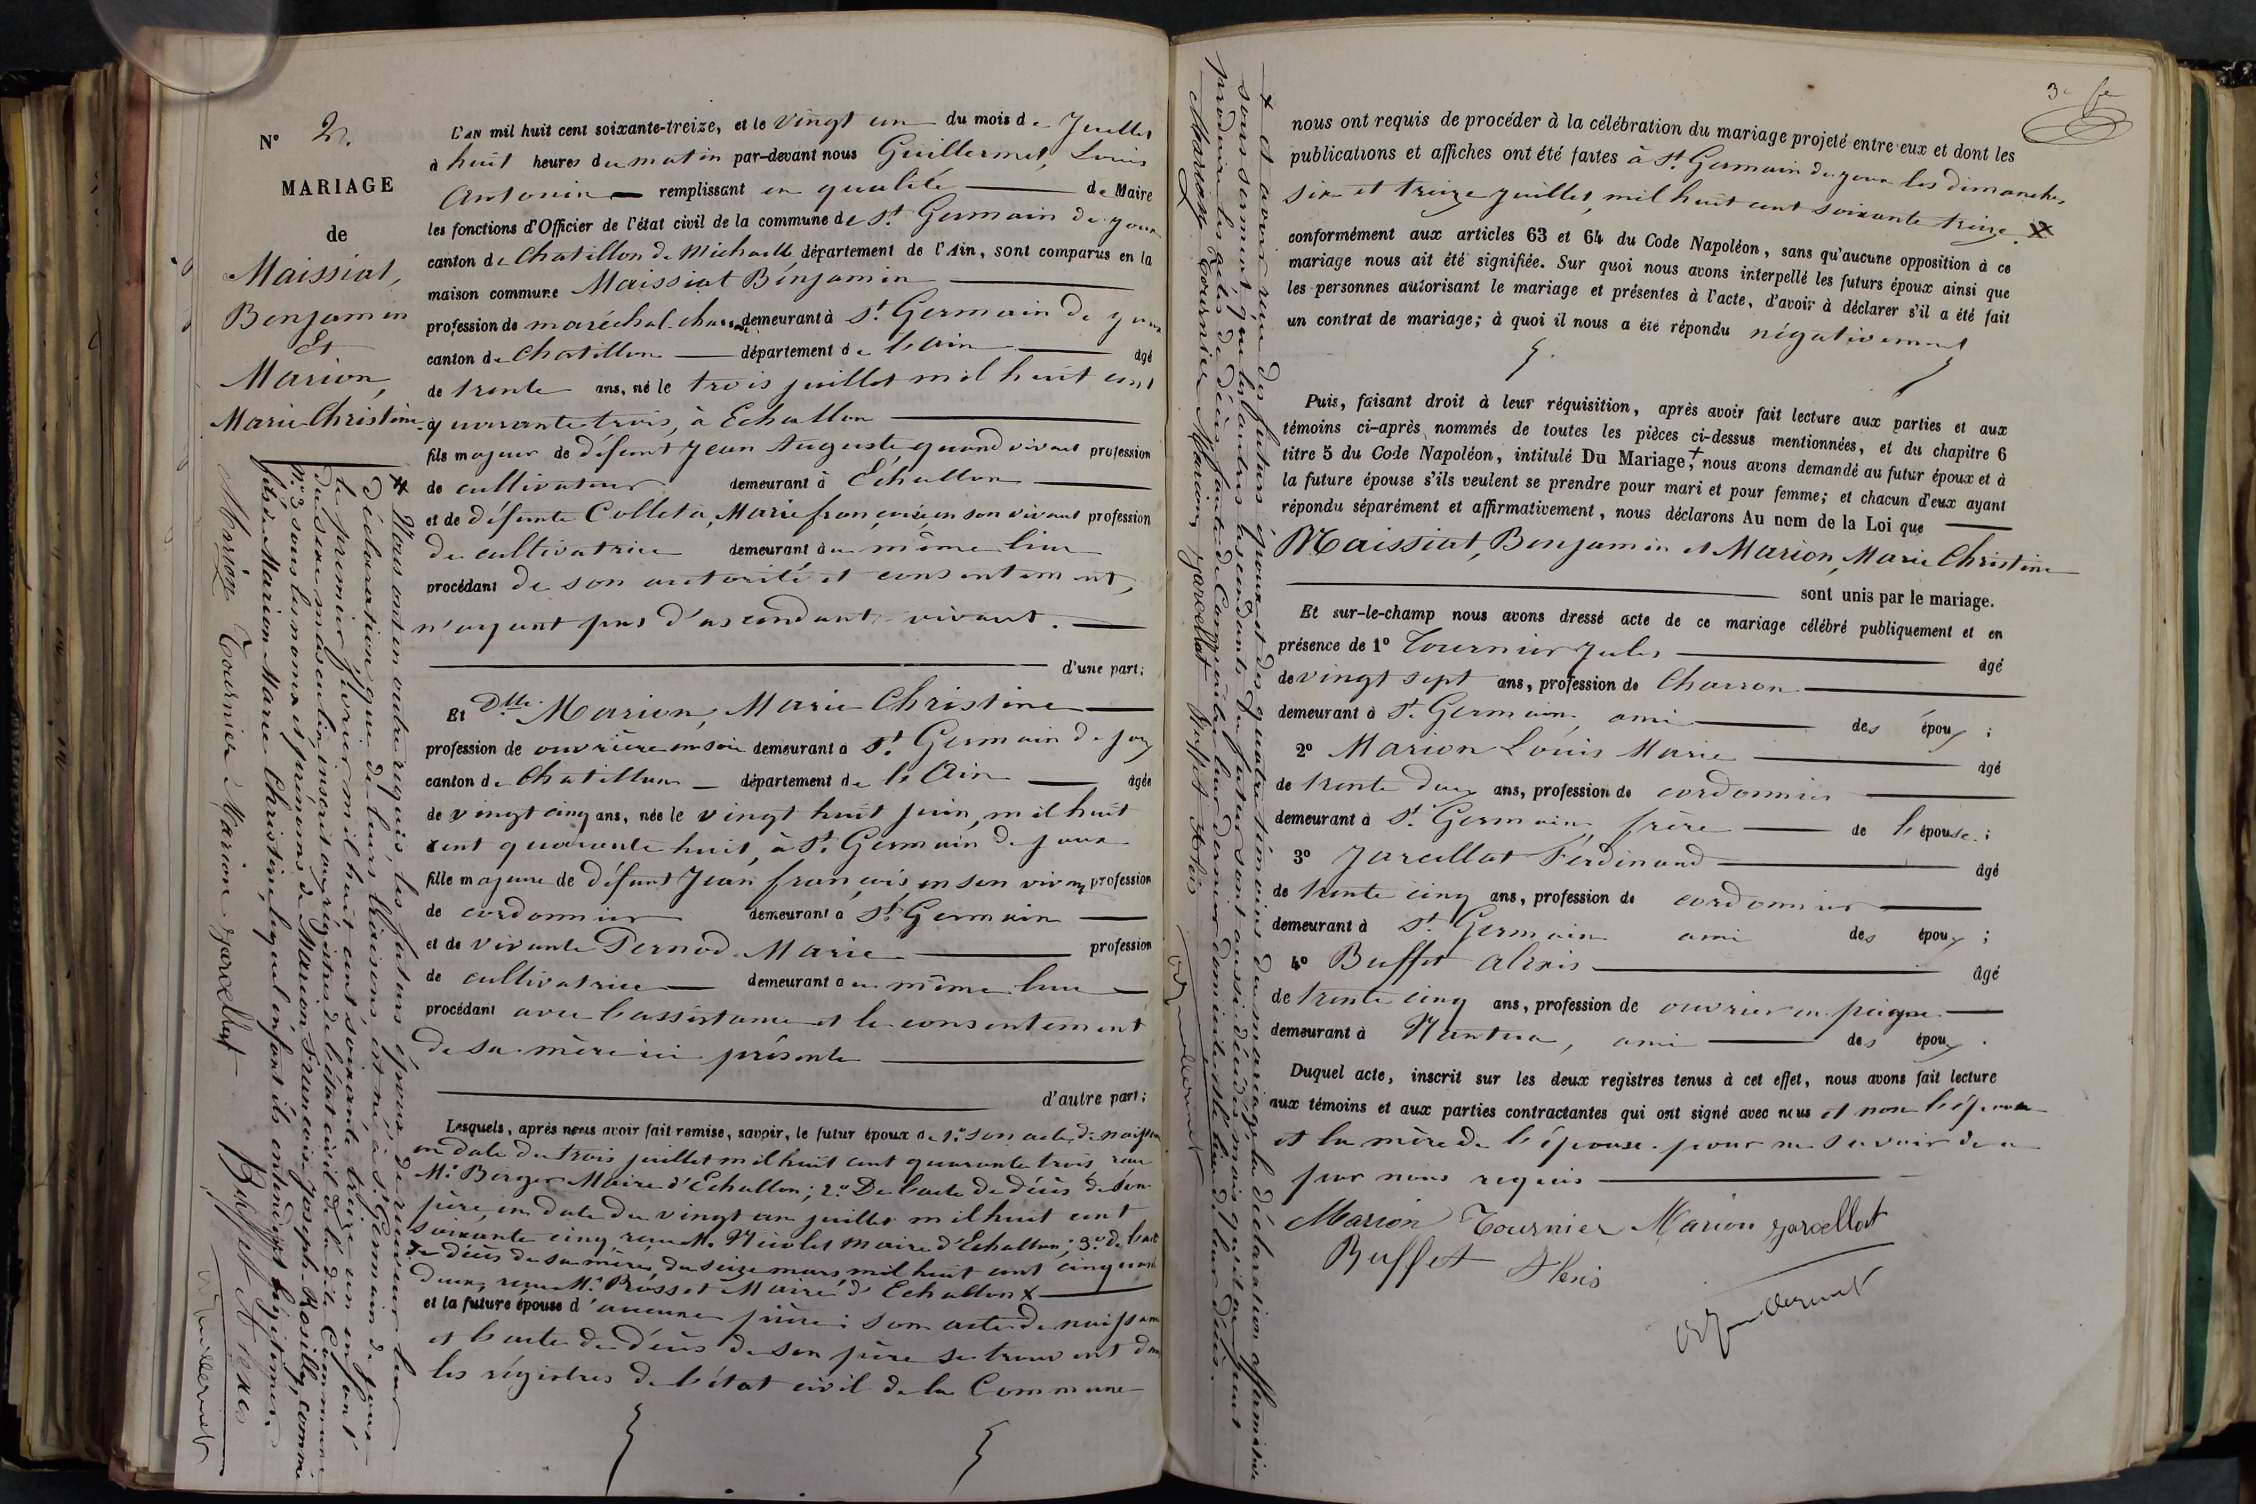 N° 2.
MARIAGE
de
Maissiat,
Benjamin
Et
Marion,
Marie Christine.
L'AN mil huit cent soixante-treize, et le vingt un du mois de Juillet
à huit heures du matin par-devant nous Guillermet, Louis
Antonin remplissant en qualité de Maire
les fonctions d'Officier de l'état civil de la commune de St Germain de joux
canton de Chatillon de Michaille département de l'Ain, sont comparus en la
maison commune Maissiat Benjamin
profession de maréchal-charron demeurant à St Germain de joux
canton de Chatillon département de l'Ain âgé
de trente ans, né le trois juillet mil huit cent
quarante trois, à Echallon
fils majeur de défunt Jean Auguste, quand vivant profession
de cultivateur demeurant à Echallon
et de défunte Colleta, Marie françoise en son vivant profession
de cultivatrice demeurant au même lieu
procédant de son autorité et consentement,
n'ayant pas d'ascendant vivant.
d'une part;
Et Dlle Marion, Marie Christine
profession de ouvrière en soie demeurant à St Germain de joux
canton de Chatillon département de l'Ain âgée
de vingt cinq ans, née le vingt huit juin, mil huit
cent quarante huit, à St Germain de joux
fille majeure de défunt Jean françois, en son vivant profession
de cordonnier demeurant à St Germain
et de vivante Pernod Marie profession
de cultivatrice demeurant au même lieu
procédant avec l'assistance et le consentement
de sa mère ici présente
d'autre part;
Lesquels, après nous avoir fait remise, savoir, le futur époux de 1° son acte de naissance
en date du trois juillet mil huit cent quarante trois, reçu
Mr Borger Maire d'Echallon; 2° De l'acte de décès de son
père, en date du vingt un juillet mil huit cent
soixante cinq reçu Mr Nicolet maire d'Echallon; 3° de l'acte
de décès de sa mère, du seize mars mil huit cent cinquante
deux, reçu Mr Prosset Maire d'Echallon X
et la future épouse d'aucune pièce; son acte de naissance
et l'acte de décès de son père se trouvent dans
les régistres de l'état civil de la Commune
X Nous ont en outre requis, les futurs époux de recevoir leur
Déclaration que de leurs liaisons, est né, à St Germain de Joux
le premier février mil huit cent soixante treize un enfant
du sexe masculin, inscrit aux régistres de l'état civil de la dite Commune
N° 3 sous les noms et prénoms de Marion François Joseph Rosilly, comme
fils de Marion Marie Christine, lequel enfant ils entendent légitimer.
Marion Tournier Marion Jarcellat Buffet Alexis
Guillermet
X et avoir reçu des futurs époux et des quatre témoins du mariage la déclaration affirmative
sous serment, que les autres ascendants du futur sont aussi décédés mais qu'il ne peut
produire les actes de décès, faute de connaître leur dernier domicile et le lieu de leur décès.
Marion Tournier Marion Jarcellat Buffet Alexis
Guillermet
3e fe
nous ont requis de procéder à la célébration du mariage projeté entre eux et dont les
publications et affiches ont été faites à St Germain de joux les dimanches
six et treize juillet, mil huit cent soixante treize. X
conformément aux articles 63 et 64 du Code Napoléon, sans qu'aucune opposition à ce
mariage nous ait été signifiée. Sur quoi nous avons interpellé les futurs époux ainsi que
les personnes autorisant le mariage et présentes à l'acte, d'avoir à déclarer s'il a été fait
un contrat de mariage; à quoi il nous a été répondu négativement
Puis, faisant droit à leur réquisition, après avoir fait lecture aux parties et aux
témoins ci-après nommés de toutes les pièces ci-dessus mentionnées, et du chapitre 6
titre 5 du Code Napoléon, intitulé Du Mariage, + nous avons demandé au futur époux et à
la future épouse s'ils veulent se prendre pour mari et pour femme; et chacun d'eux ayant
répondu séparément et affirmativement, nous déclarons Au nom de la Loi que
Maissiat, Benjamin et Marion, Marie Christine
sont unis par le mariage.
Et sur-le-champ nous avons dressé acte de ce mariage célébré publiquement et en
présence de 1° Tournier Jules âgé
de vingt sept ans, profession de Charron
demeurant à St Germain, ami des époux;
2° Marion Louis Marie âgé
de trente deux ans, profession de cordonnier
demeurant à St Germain, frère de l'épouse.;
3° Jarcellat Ferdinand âgé
de trente cinq ans, profession de cordonnier
demeurant à St Germain ami des époux;
4° Buffet Alexis âgé
de trente cinq ans, profession de ouvrier en peigne
demeurant à Nantua, ami des époux.
Duquel acte, inscrit sur les deux registres tenus à cet effet, nous avons fait lecture
aux témoins et aux parties contractantes qui ont signé avec nous et non l'époux
et la mère de l'épouse pour ne savoir de ce
par nous requis
Marion Tournier Marion Jarcellat
Buffet Alexis
Guillermet